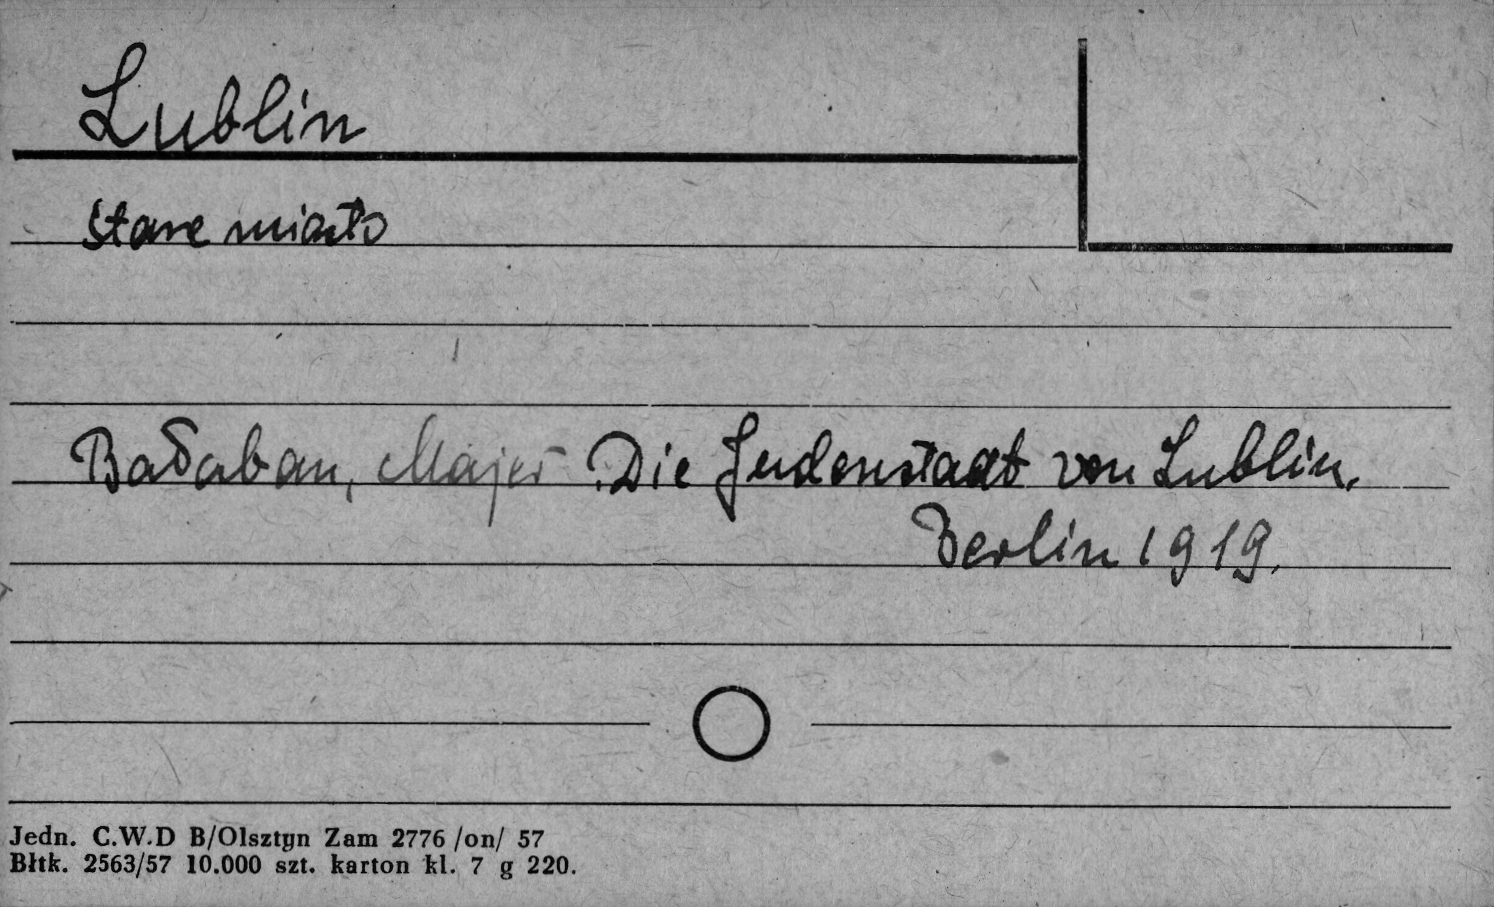 Lublin
Stare miasto
Bałaban, Majer Die Judenstadt von Lublin.
Berlin 1919.
Jedn. C.W.D B/Olsztyn Zam 2776 /on/ 57
Bltk. 2563/57 10.000 szt. karton kl. 7 g 220.